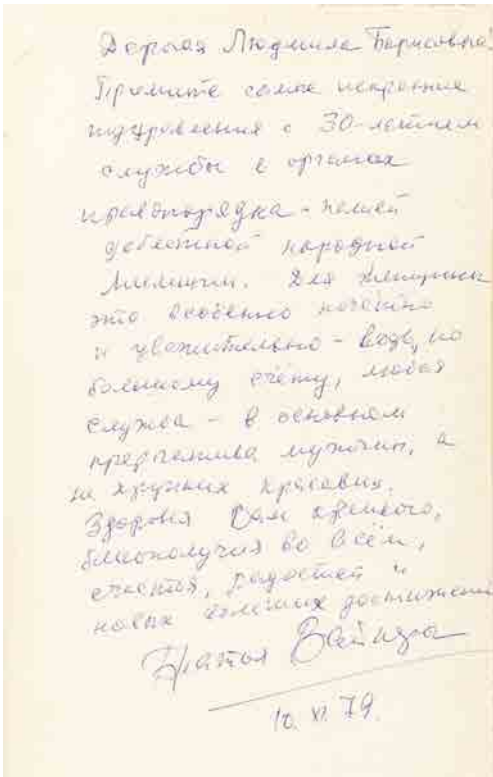 Дорогая Людмила Борисовна!
Примите самые искренние
поздравления с 30-летием
службы в органах
правопорядка - нашей
доблестной народной
милиции. Для женщины
это особенно почётно
и уважительно - ведь, по
большому счёту, любая
служба - в основном
прерогатива мужчин, а
не хрупких красавиц.
Здоровья Вам крепкого,
благополучия во всём,
счастья, радостей и
новых больших достижений
Братья Вайнеры
10. XI. 79.